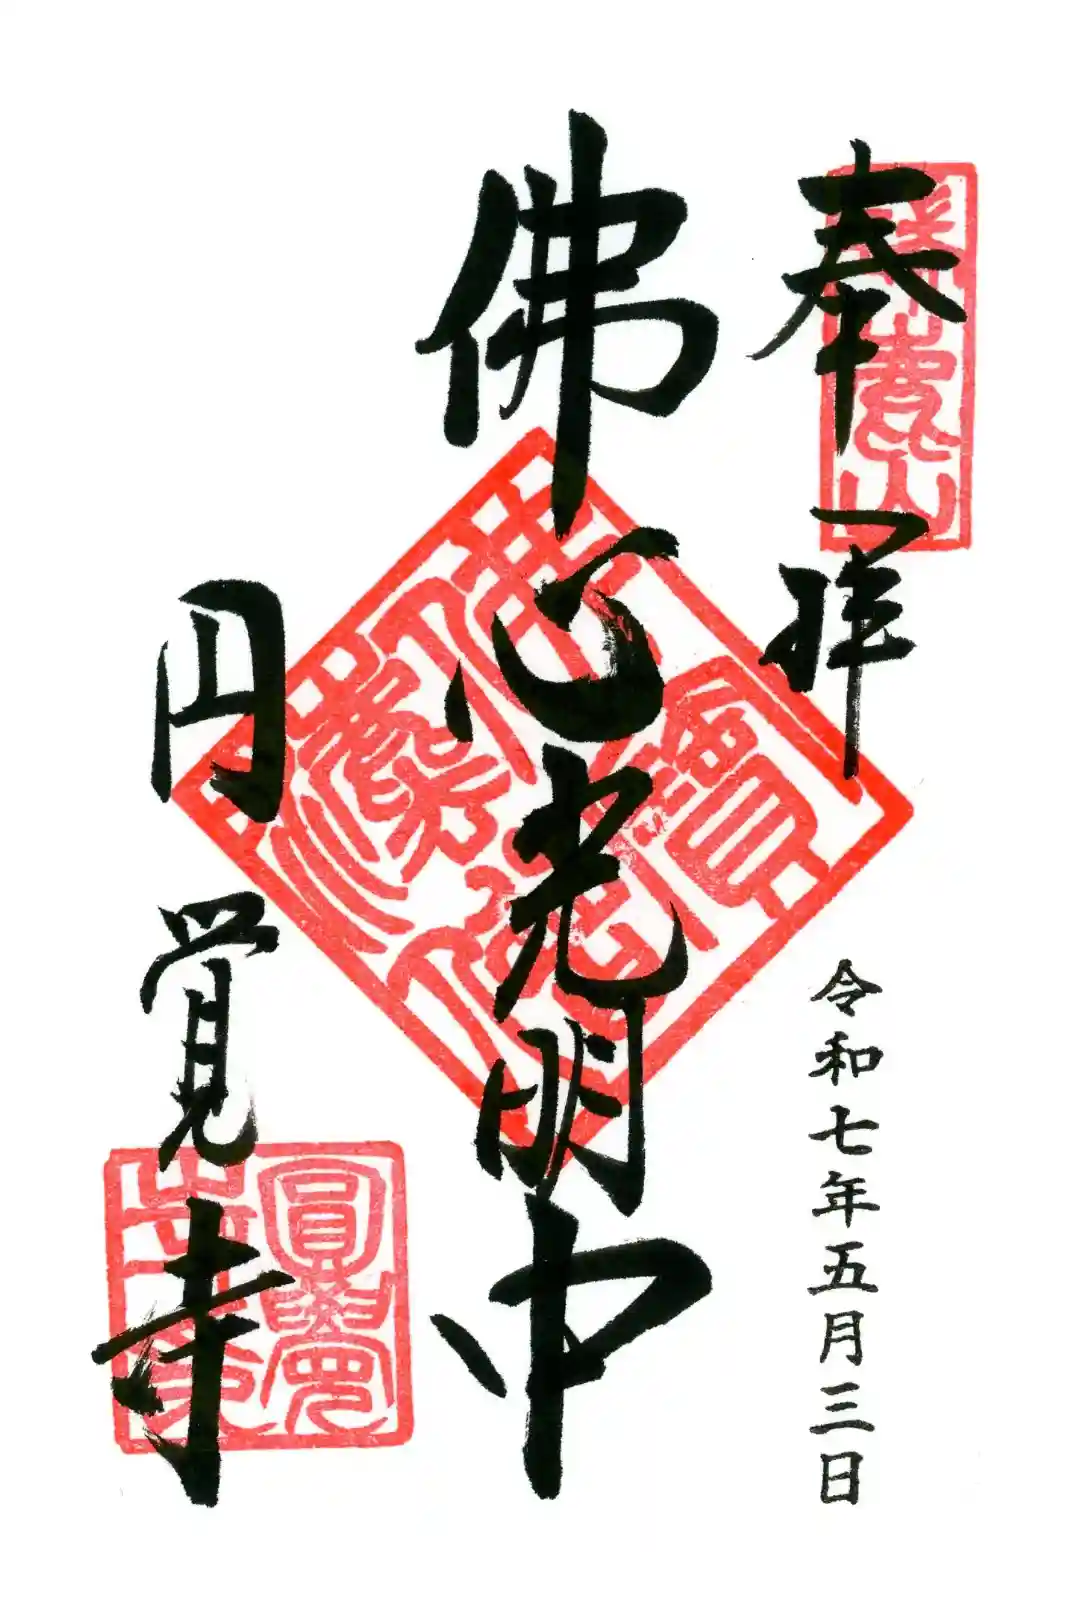 奉拝
令和七年五月三日
佛心光明中
円覚寺